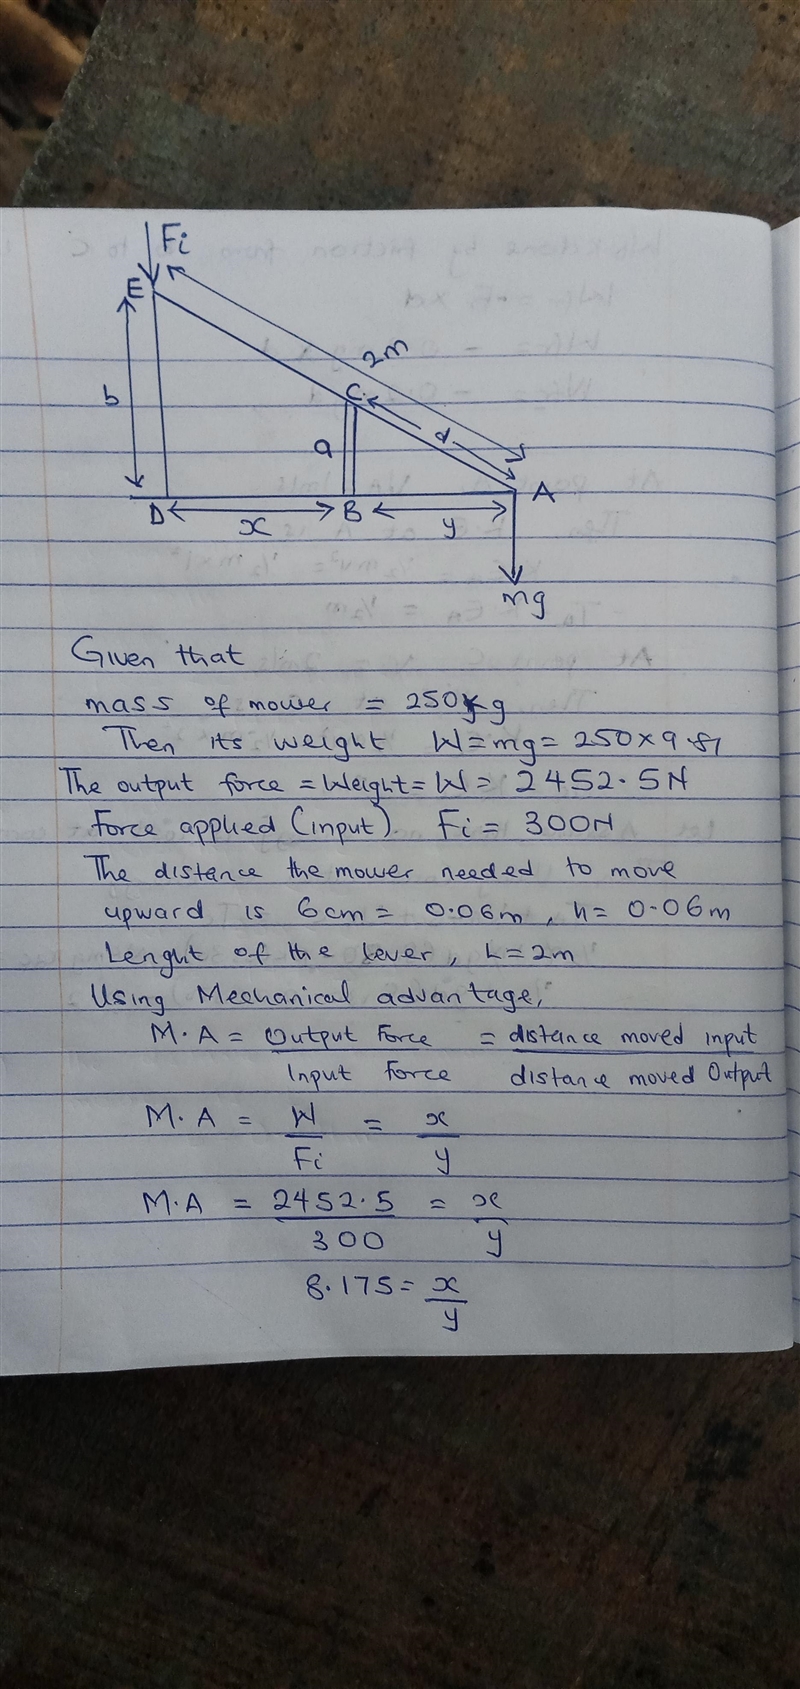 Fi
E
2m
b
C
d
a
A
D
x
B
y
mg
Given that
mass of mower = 250kg
Then its weight W=mg= 250×9.81
The output force = Weight = W = 2452.5N
Force applied (input). Fi = 300N
The distance the mower needed to move
upward is 6cm = 0.06m, h= 0.06m
Lenght of the lever, L=2m
Using Mechanical advantage,
M.A = Output Force = distance moved input
Input force distance moved Output
M.A = W = x
Fi y
M.A = 2452.5 = x
300 y
8.175 = x
y